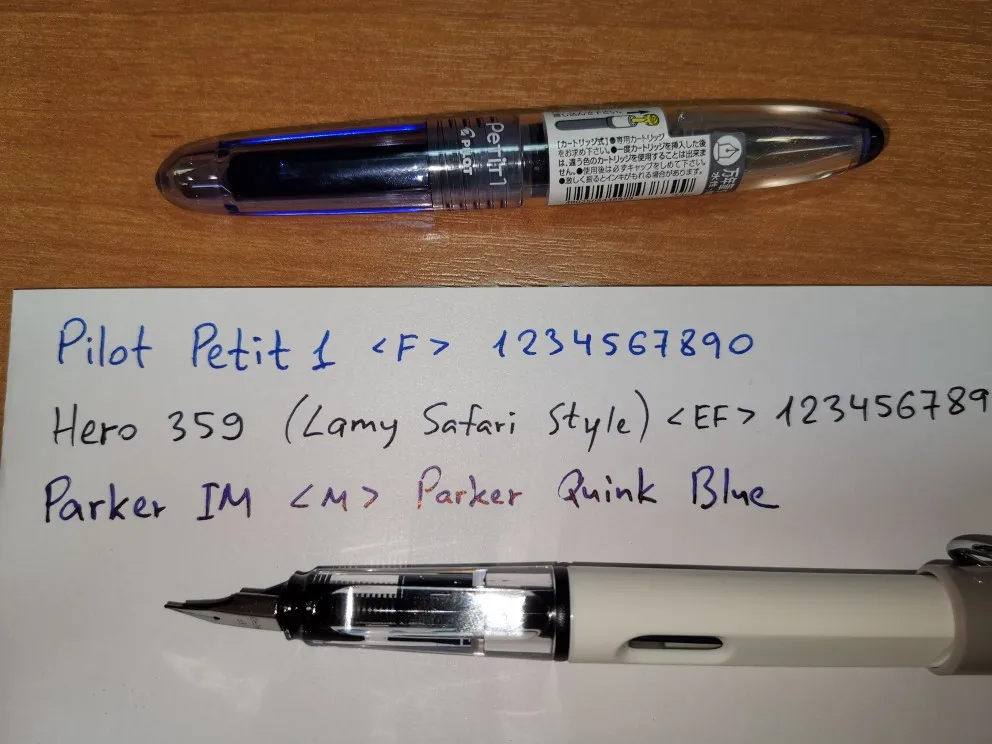 Petit 1
PILOT
【カートリッジ式】●専用カートリッジ
をお求め下さい。●一度カートリッジを挿入した後
は、違う色のカートリッジを使用することは出来ま
せん。●使用後は必ずキャップをしめて下さい。
●激しく振るとインキがもれる場合があります。
Pilot Petit 1 <F> 1234567890
Hero 359 (Lamy Safari Style) <EF> 123456789
Parker IM <M> Parker Quink Blue